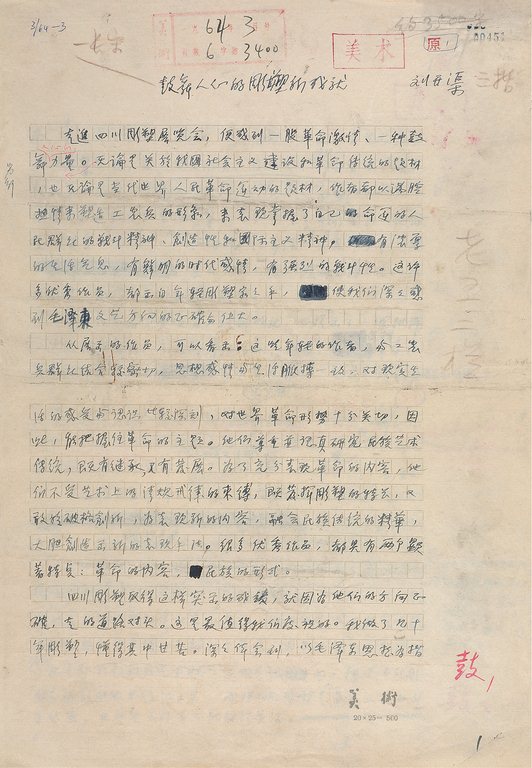 3/64-3
64 3
6 3400
美术
原1
00451
鼓舞人们的雕塑新成就
刘开渠
走进四川雕塑展览会，便感到一股革命激情、一种鼓
舞力量。无论是关于我国社会主义建设和革命传统的题材，
也无论是当代世界人民革命运动的题材，作者都以满腔
热情来塑造工农兵的形象，来表现掌握了自己的命运的人
民群众的战斗精神、创造性和国际主义精神。有浓厚
的生活气息，有鲜明的时代感情，有强烈的战斗性。这许
多优秀作品，都出自年轻雕塑家之手，使我们深深感
到毛泽东文艺方向的正确与伟大。
从展出的作品，可以看出：这些年轻的作者，与工农
兵群众结合较密切，思想感情
活的感受与认识比较深刻，对世界革命形势十分关切，因
此，能把握住革命的主题。他们尊重并认真研究民族艺术
传统，既有继承又有发展。为了充分表现革命的内容，他
们不受艺术上的清规戒律的束缚，既发挥雕塑的特长，又
敢于破格创新，为表现新的内容，融会民族传统的精华，
大胆创造出新的表现手法。很多优秀作品，都具有两个显
著特点：革命的内容，民族的形式。
四川雕塑取得这样突出的成绩，就因为他们的方向正
确，走的道路对头。这是最值得我们学习的。我做了几十
年雕塑，懂得其中甘苦。深深体会到，以毛泽东思想为指
鼓，
美術
20×25=500
1